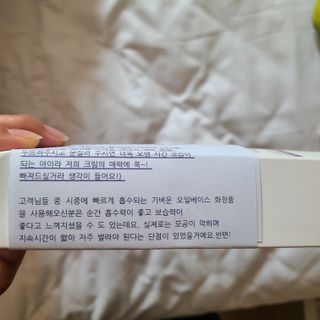 두드려주시고 문질러 주시면 더욱 오랜 시간 보습이
되는 아이라 저희 크림의 매력에 푹~!
빠져드실거라 생각이 들어요!)
고객님들 중 시중에 빠르게 흡수되는 가벼운 오일베이스 화장품
을 사용해오신분은 순간 흡수력이 좋고 보습력이
좋다고 느껴지셨을 수 도 있는데요, 실제로는 모공이 막히며
지속시간이 짧아 자주 발라야 된다는 단점이 있었을거예요.반면!